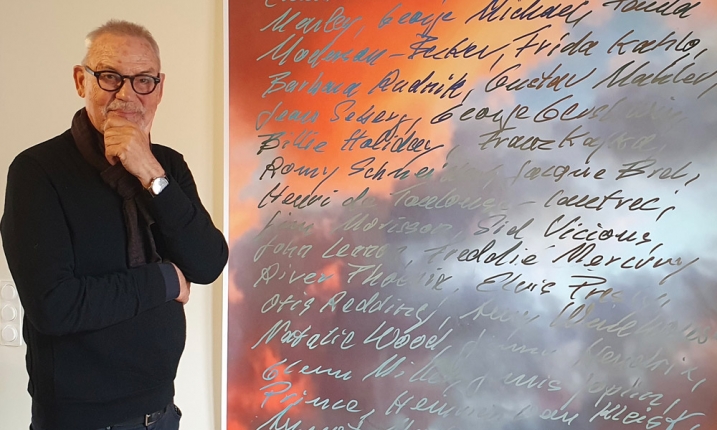 Marley, George Michael, Paula
Modersohn-Becker, Frida Kahlo,
Barbara Rudnik, Gustav Mahler,
Jean Seberg, George Gershwin,
Billie Holiday, Franz Kafka,
Romy Schneider, Jacque Brel,
Henri de Toulouse-Lautrec,
Jim Morisson, Sid Vicious,
John Lennon, Freddie Mercury
River Phoenix, Elvis Presley,
Otis Redding, Amy Winehouse
Natalie Wood, Jimmi Hendrix,
Glenn Miller, Janis Joplin,
Prince, Heinrich von Kleist,